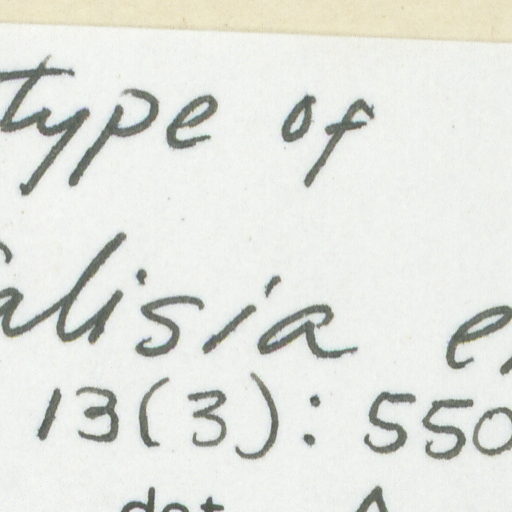 type of
alisia e
13(3): 550
det. A